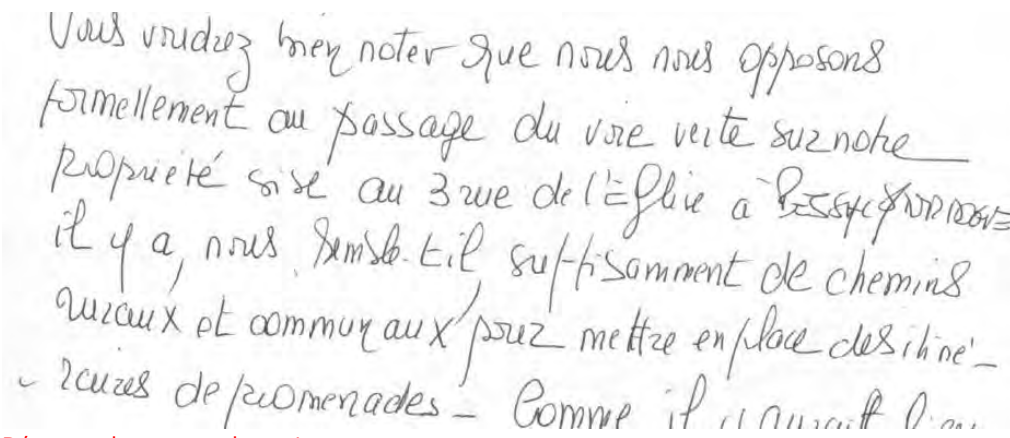 Vous voudrez bien noter que nous nous opposons
formellement au passage du voie verte sur notre
propriété sise au 3 rue de l'Eglise a
il y a, nous semble-t-il, suffisamment de chemins
ruraux et communaux pour mettre en place des itiné-
raires de promenades - Comme il y aurait lieu